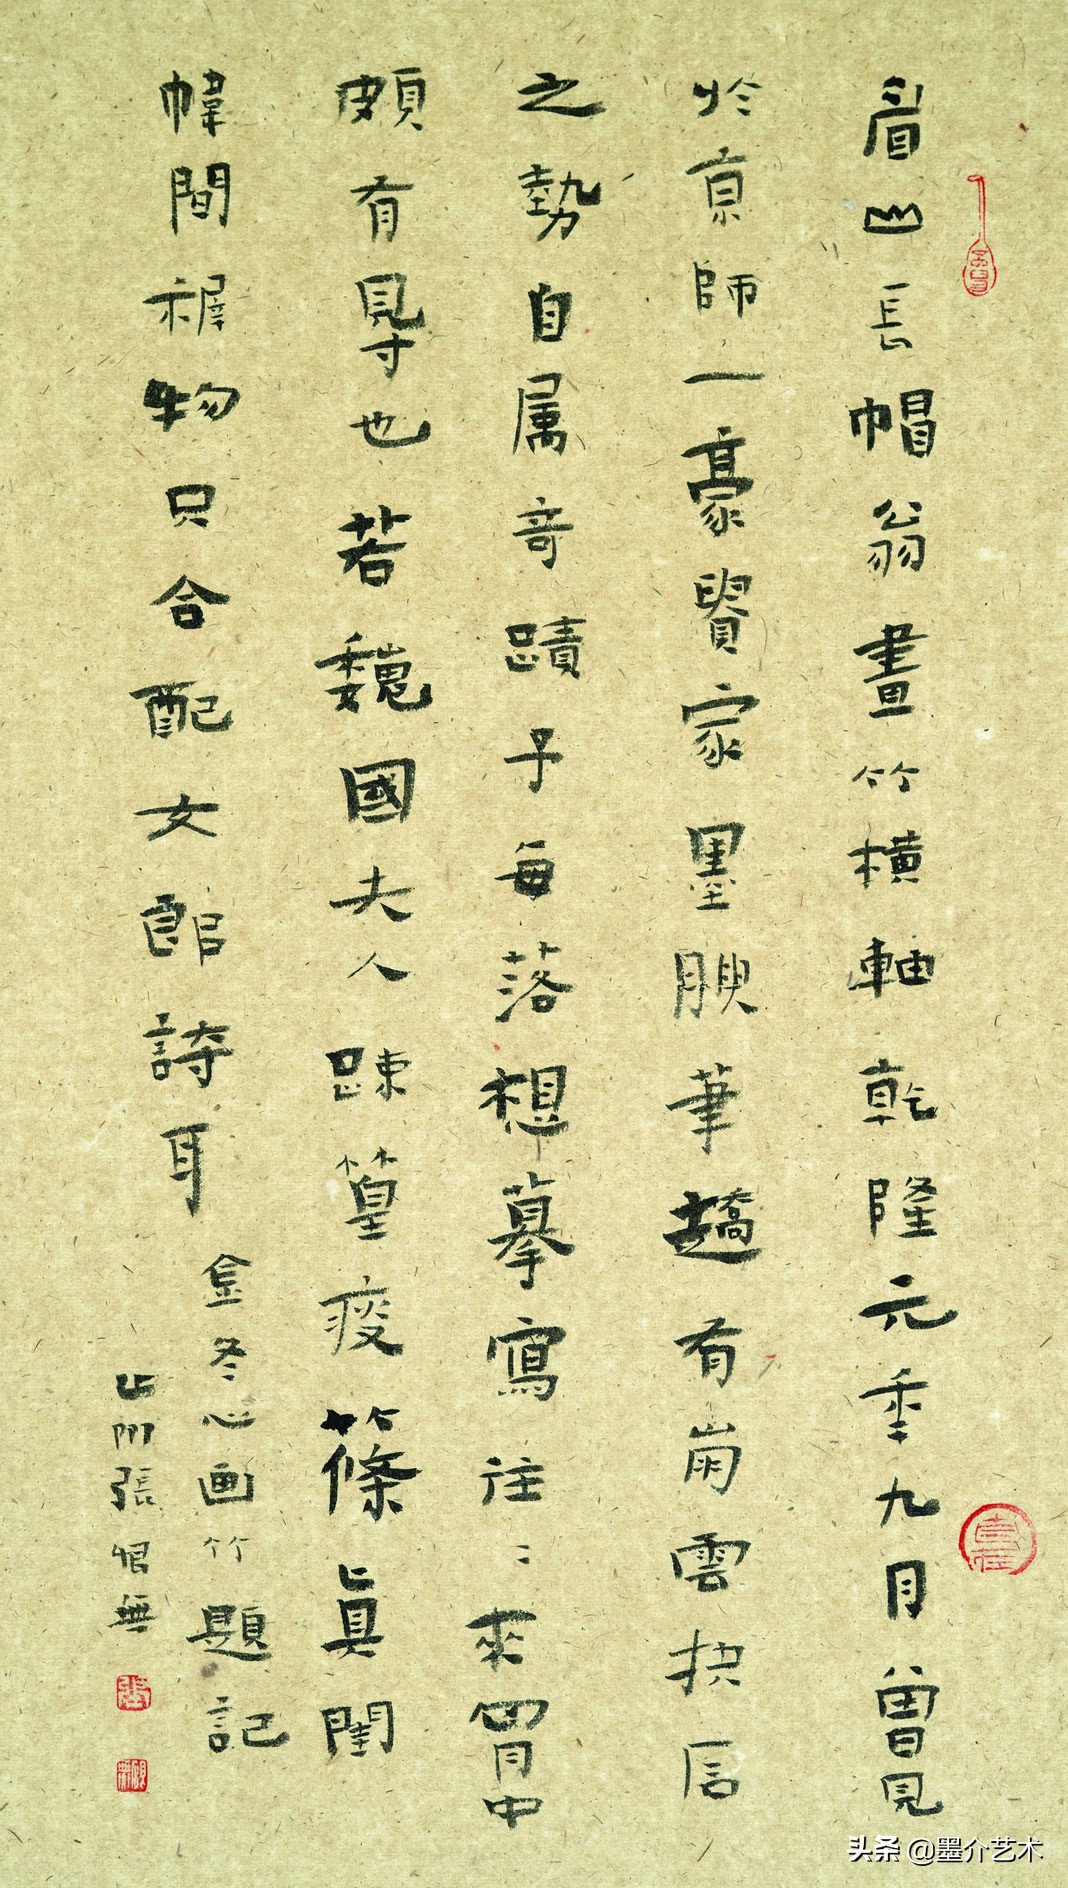 眉山長帽翁畫竹橫軸乾隆元年九月曾見
於京師一豪貴家墨腴筆趫有崩雲抉
之勢自属奇蹟予每落想摹寫往往來胷中
頗有㝵也若魏國夫人踈篁瘦篠真閨
幃間物只合配女郎詩耳
金冬心画竹題記
張恨無
头条 @墨介艺术